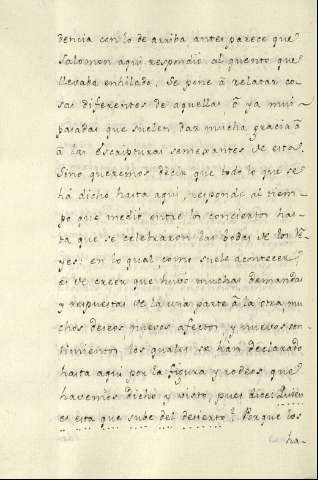 dencia con lo de arriba antes parece que
Salomon aqui respondiò al quento que
llevaba enhilado. Se pone à relatar co-
sas diferentes de aquellas ò ya mui
pasadas que suelen dar mucha gracia
à las Escripturas semexantes de estas.
Sino queremos decir que todo lo que se
há dicho hasta aqui, responda al tiem-
po que mediò entre los conciertos has-
ta que se celebraron las bodas de los Re-
yes: en lo qual, como suele acontecer,
es de creer que hubo muchas demandas
y respuestas de la una parte à la otra, mu-
chos deseos, nuevos afectos, y nuevos sen-
timientos, los quales se hàn declarado
hasta aqui por la figura y rodeos, que
havemos dicho y visto, pues dice: Quien
es esta que sube del desierto? Porque los
ha-